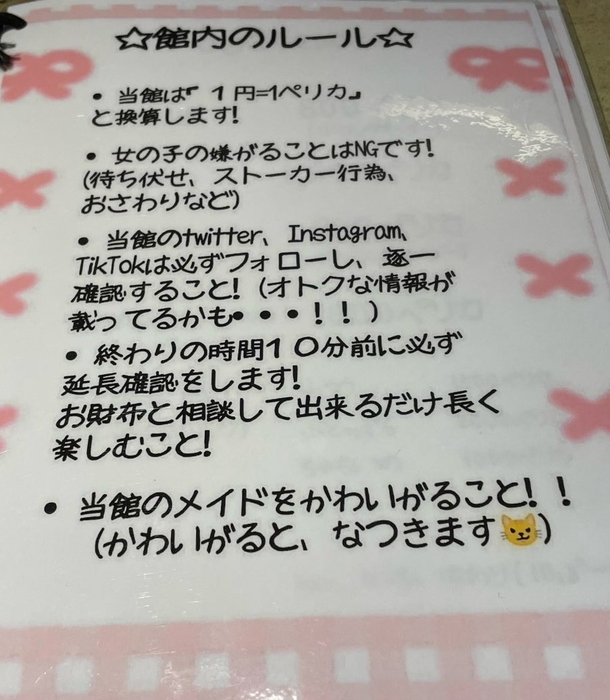 ☆館内のルール☆
• 当館は『 1 円=1ペリカ』
と換算します!
• 女の子の嫌がることはNGです!
(待ち伏せ、ストーカー行為、
おさわりなど)
• 当館のtwitter、Instagram、
TikTokは必ずフォローし、逐一
確認すること! (オトクな情報が
載ってるかも・・・!!)
• 終わりの時間10分前に必ず
延長確認をします!
お財布と相談して出来るだけ長く
楽しむこと!
• 当館のメイドをかわいがること!!
(かわいがると、なつきます😼)